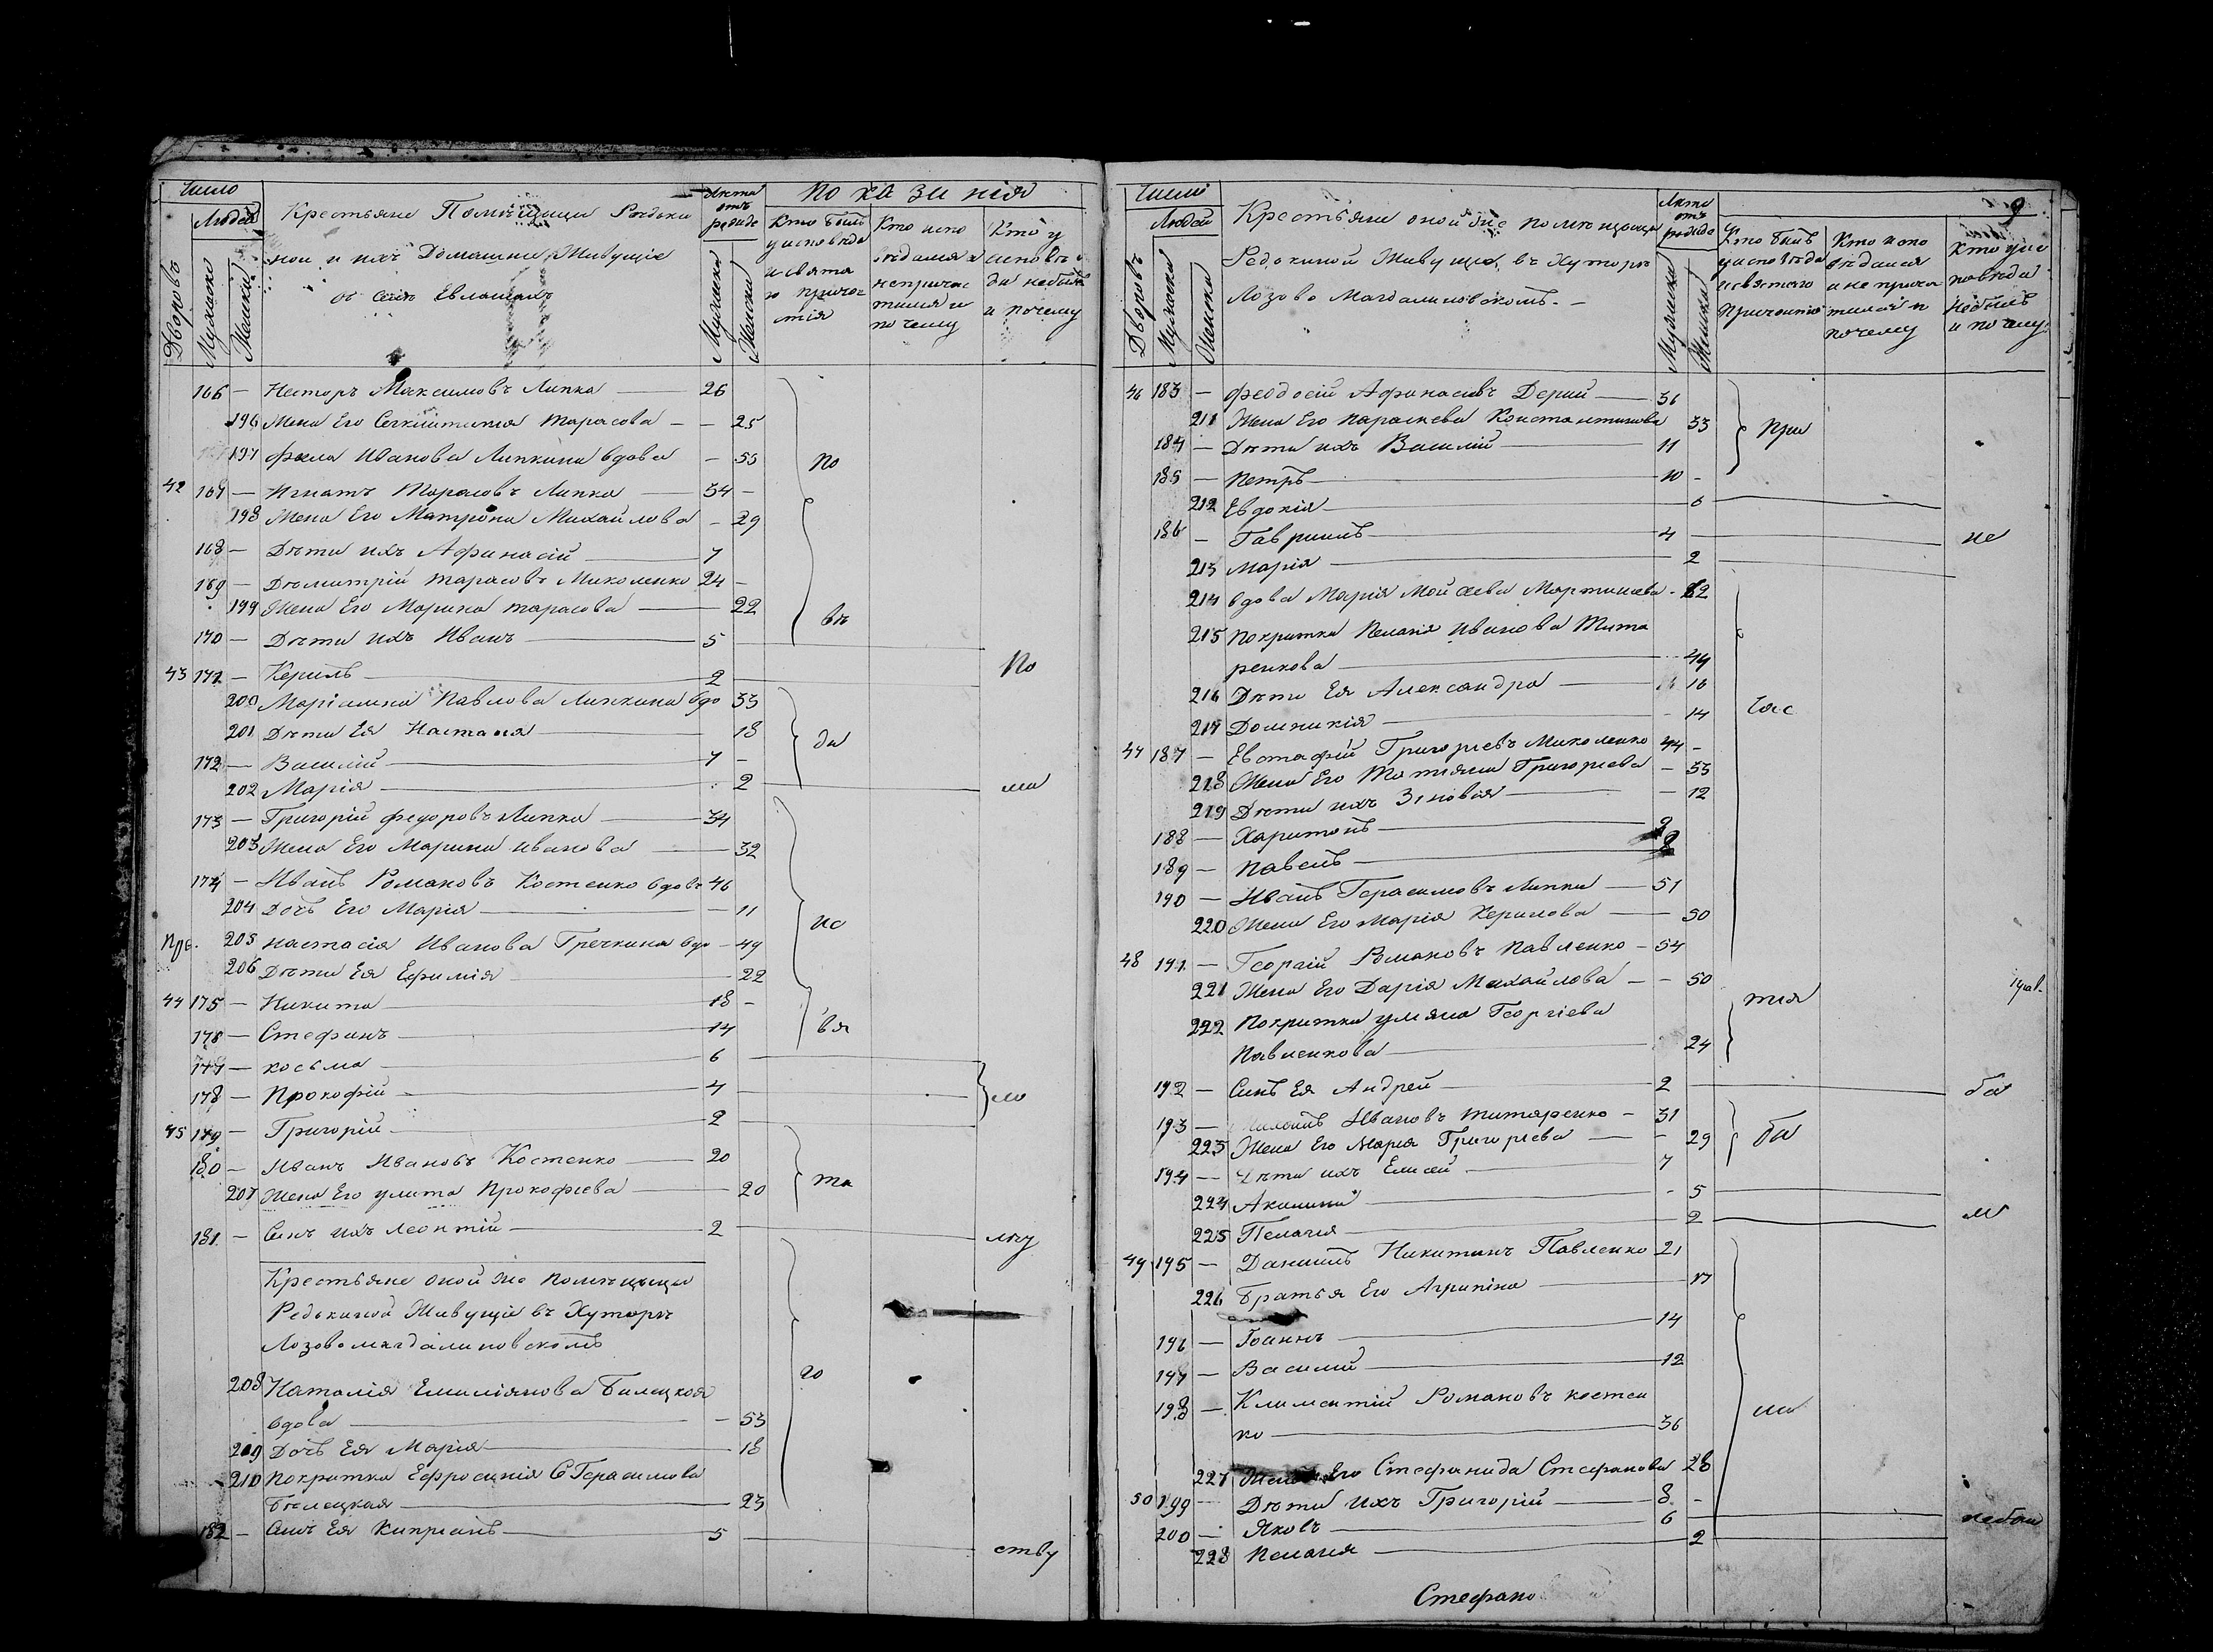 Число
Людей
Дворовъ
Мужеска
Женска
Крестьяне Помѣщицы Редьки
ной и ихъ Домашни Живущіе
въ селѣ Евлашахъ
Лѣта
отъ
рожде
Мужеска
Женска
Показанія
Кто былъ
у исповѣди
и свята
го причас
тія
Кто испо
вѣдался а
непричас
тился и
почему
Кто у
исповѣ
ди небылъ
и почему
166 — Несторъ Максимовъ Липка — 26
196 Жена Его Секлитикія Тарасова — 25
197 Фекла Иванова Липкина вдова — 55
По
42 167 — Игнатъ Тарасовъ Липка — 34 —
198 Жена Его Матрона Михайлова — 29
168 — Дѣти ихъ Афанасій — 7
169 — Дѣмитрій Тарасовъ Миколенко 24 —
199 Жена Его Марина Тарасова — 22
вѣ
170 — Дѣти ихъ Иванъ — 5
По
43 171 — Керилъ — 2
200 Маріанна Павлова Липкина вдо 33
201 Дѣти Ея Настасія — 18
да
172 — Василій — 7 —
202 Марія — 2
ма
173 — Григорій Федоровъ Липка — 34
203 Жена Его Марина Иванова — 32
174 — Иванъ Романовъ Костенко вдовъ 46
204 Дочь Его Марія — 11
ис
Прь. 205 Настасія Иванова Гречкина вдо — 49
206 Дѣти Ея Ефимія — 22
44 175 — Никита — 18 —
вя
178 — Стефанъ — 14
177 — Косьма — 6
178 — Прокофій — 4
ло
45 179 — Григорій — 2
180 — Иванъ Ивановъ Костенко — 20
та
207 Жена Его Улита Прокофіева — 20
181 — Синъ ихъ Леонтій — 2
лѣу
Крестьяне оной же помѣщицы
Редькиной Живущіи въ Хуторѣ
Лозовомагдалиновскомъ
го
208 Наталія Емиліянова Билецкая
вдова — 53
209 Дочь Ея Марія — 18
210 Покритка Ефросинія Герасимова
Белецкая — 23
182 — Синъ Ея Кипріянъ — 5
ству
9
Число
Людей
Дворовъ
Мужеска
Женска
Крестьяне оной же помѣщицы
Редькиной Живущіе въ Хуторѣ
Лозово Магдалиновскомъ. —
Лѣта
отъ
рожде
Мужеска
Женска
Кто былъ
у исповѣди
и святаго
причастія
Кто испо
вѣдался
а не прича
тился и
почему
Кто у ис
повѣди
небылъ
и почему
46 183 — Феодосій Афанасіевъ Дерий — 36
211 Жена Его Параскева Константинова 33
При
184 — Дѣти ихъ Василій — 11
185 — Петръ — 10 —
212 Евдокія — 6
186 — Гавриилъ — 4
не
213 Марія — 2
214 вдова Марія Мойсеева Мартинева — 62
215 Покритка Пелагія Иванова Тита
ренкова — 44
216 Дѣти Ея Александра — 16
час
217 Домникія — 14
47 187 — Евстафій Григоріевъ Миколенко 44 —
218 Жена Его Татіяна Григоріева — 33
219 Дѣти ихъ Зіновія — 12
188 — Харитонъ — 9
189 — Павелъ — 8
190 — Иванъ Герасимовъ Липка — 51
220 Жена Его Марія Керилова — 50
48 191 — Георгій Романовъ Павленко — 54
221 Жена Его Дарія Михайлова — 50
тія
222 Покритка Уляна Георгіева
Павленкова — 24
192 — Синъ Ея Андрей — 2
бо
193 — Ивановъ Титаренко — 31
223 Жена Его Марія Григоріева — 29
би
194 — Дѣти ихъ Елисей — 7
224 Акилина — 5
225 Пелагія — 2
ли
49 195 — Даниилъ Никитинъ Павленко 21
226 Братья Его Агрипина — 17
196 — Іоаннъ — 14
197 — Василій — 12
198 — Климентій Романовъ костен
ли
ко — 36
227 Жена Его Стефанида Стефанова 28
50 199 — Дѣти ихъ Григорій — 8 —
200 — Яковъ — 6
небыл
228 Пелагія — 2
Стефано